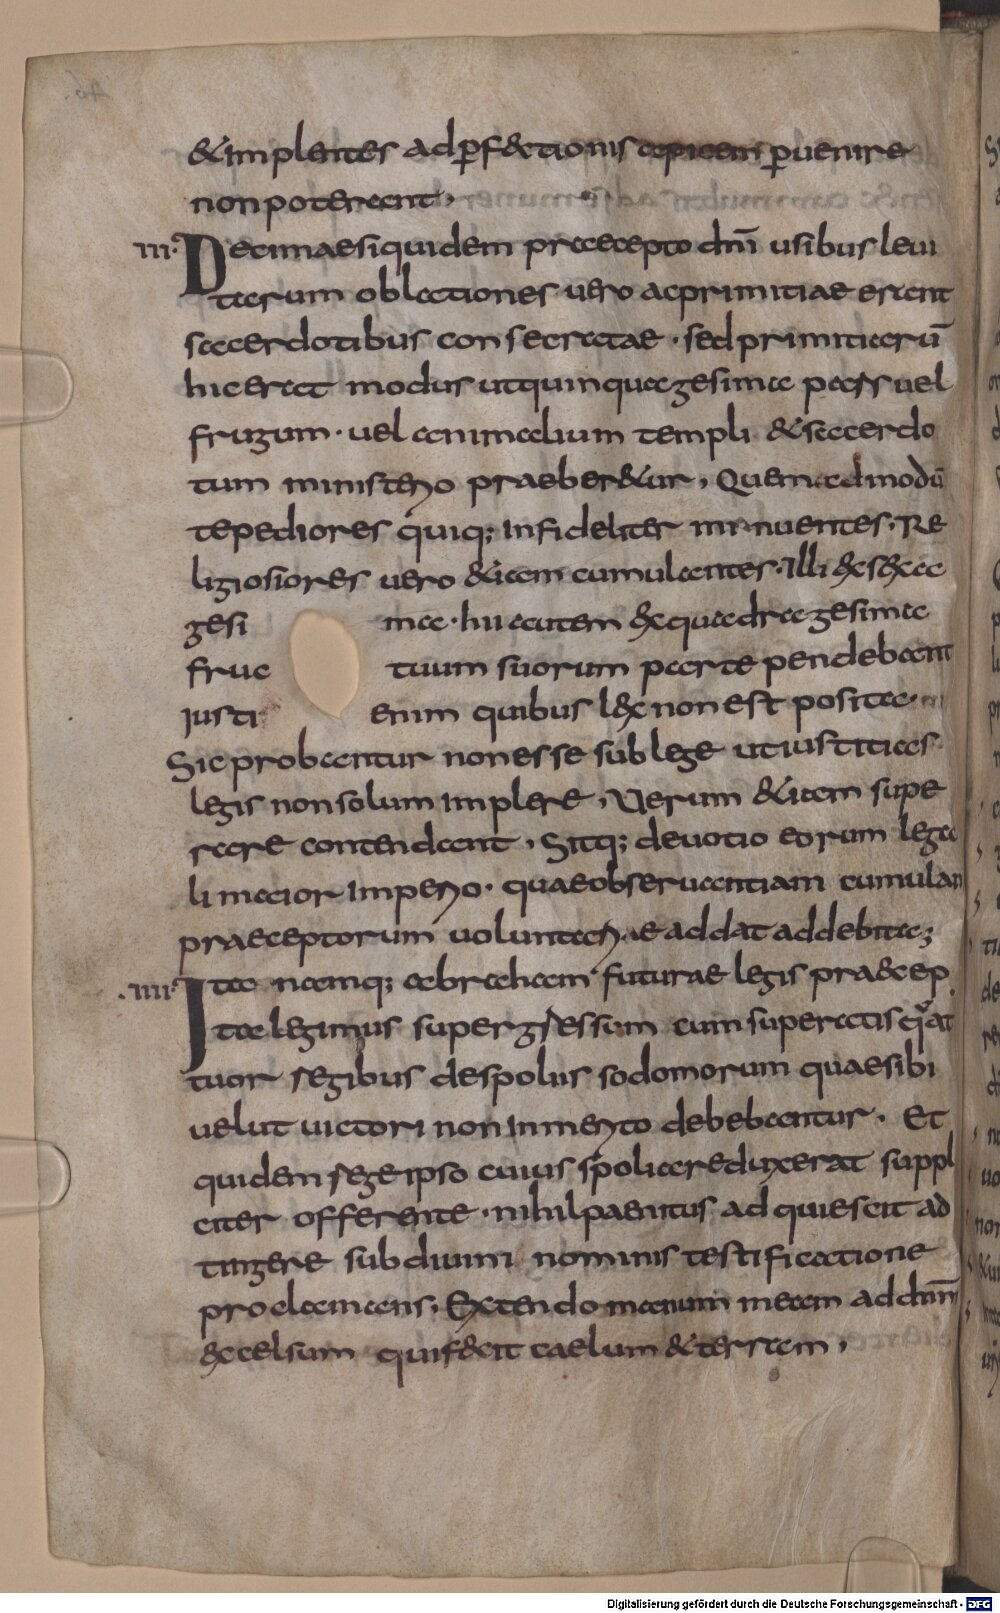 &implentes ad p̄f&ctionis apicem p̄uenire
non poterant.
III. Decimae siquidem praecepto dn̄i usibus leui
tarum oblationes uero ac primitiae erant
sacerdotibus consecratae · sed primitiarū
hic erat modus ut quinquagesima pars uel
frugum · uel animalium templi & sacerdo
tum ministerio praeber&ur, Quem admodū
tepediores quiq; infideliter minuentes, Re
ligiosiores uero &iam cumulantes · Illi exsexa
gesi ma · hii autem exquadragesima
fruc tuum suorum parte pendebant
justi enim quibus lex non est posita ·
Sic probantur non esse sub lege ut iustitias
legis non solum implere, Uerum &iam supe
rare contendant, Sitq; deuotio eorum lega
li maior imperio · quae obseruantiam cumulan
praeceptorum uoluntariae addat ad debita;
.IIII. Ita namq; abraham futurae legis praecep
ta legimus supergressum cum superatis quat
tuor regibus de spoliis sodomorum quae sibi
uelut uictori non inmerito debebantur. Et
quidem rege ipso cuius spolia reduxerat suppl
citer offerente · nihil paenitus adquiescit ad
tingere sub diuini nominis testificatione
proclamans, Extendo manum meam ad dnm̄
excelsum qui fecit caelum & terram,
Digitalisierung gefördert durch die Deutsche Forschungsgemeinschaft - DFG